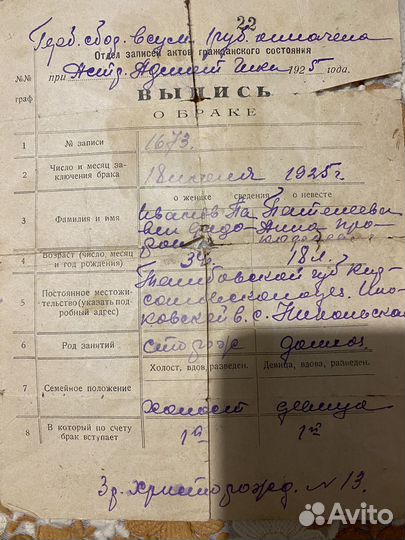 22
Герб. сбор. в сум. 1 руб. оплачена
Отдел записей актов гражданского состояния
при Астр. Админот Гика 1925 года.
№№ граф
ВЫПИСЬ
О БРАКЕ
1 № записи 1673.
2 Число и месяц заключения брака 18 1925 г.
о женихе сведения о невесте
3 Фамилия и имя Иванов Па Пателеева
Анна Про
4 Возраст (число, месяц и год рождения) 18 л.
5 Постоянное местожительство (указать подробный адрес) Тамбовской губ. Кир
сановского уез.
ковской в. с. Никольско
6 Род занятий сторож домаш.
Холост, вдов, разведен. Девица, вдова, разведен.
7 Семейное положение холост девица
8 В который по счету брак вступает 1й 1й
Зд. христорожд. N 13.
Avito